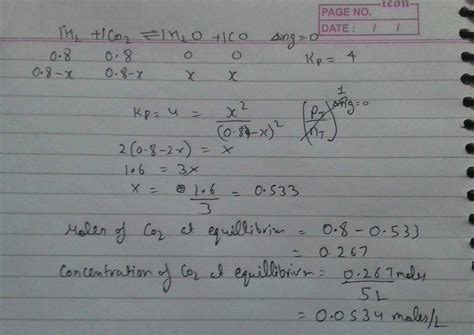 icon
PAGE NO.
DATE : / /
1H₂ + 1CO₂ ⇌ 1H₂O + 1CO Δng=0
0.8 0.8 0 0 Kp = 4
0.8-x 0.8-x x x
Kp = 4 = x²/(0.8-x)² (PT/nT)^Δng=0 1
2(0.8-2x) = x
1.6 = 3x
x = 1.6/3 = 0.533
Moles of CO₂ at equillibrium = 0.8 - 0.533
= 0.267
Concentration of CO₂ at equillibrium = 0.267 moles/5L
= 0.0534 moles/L